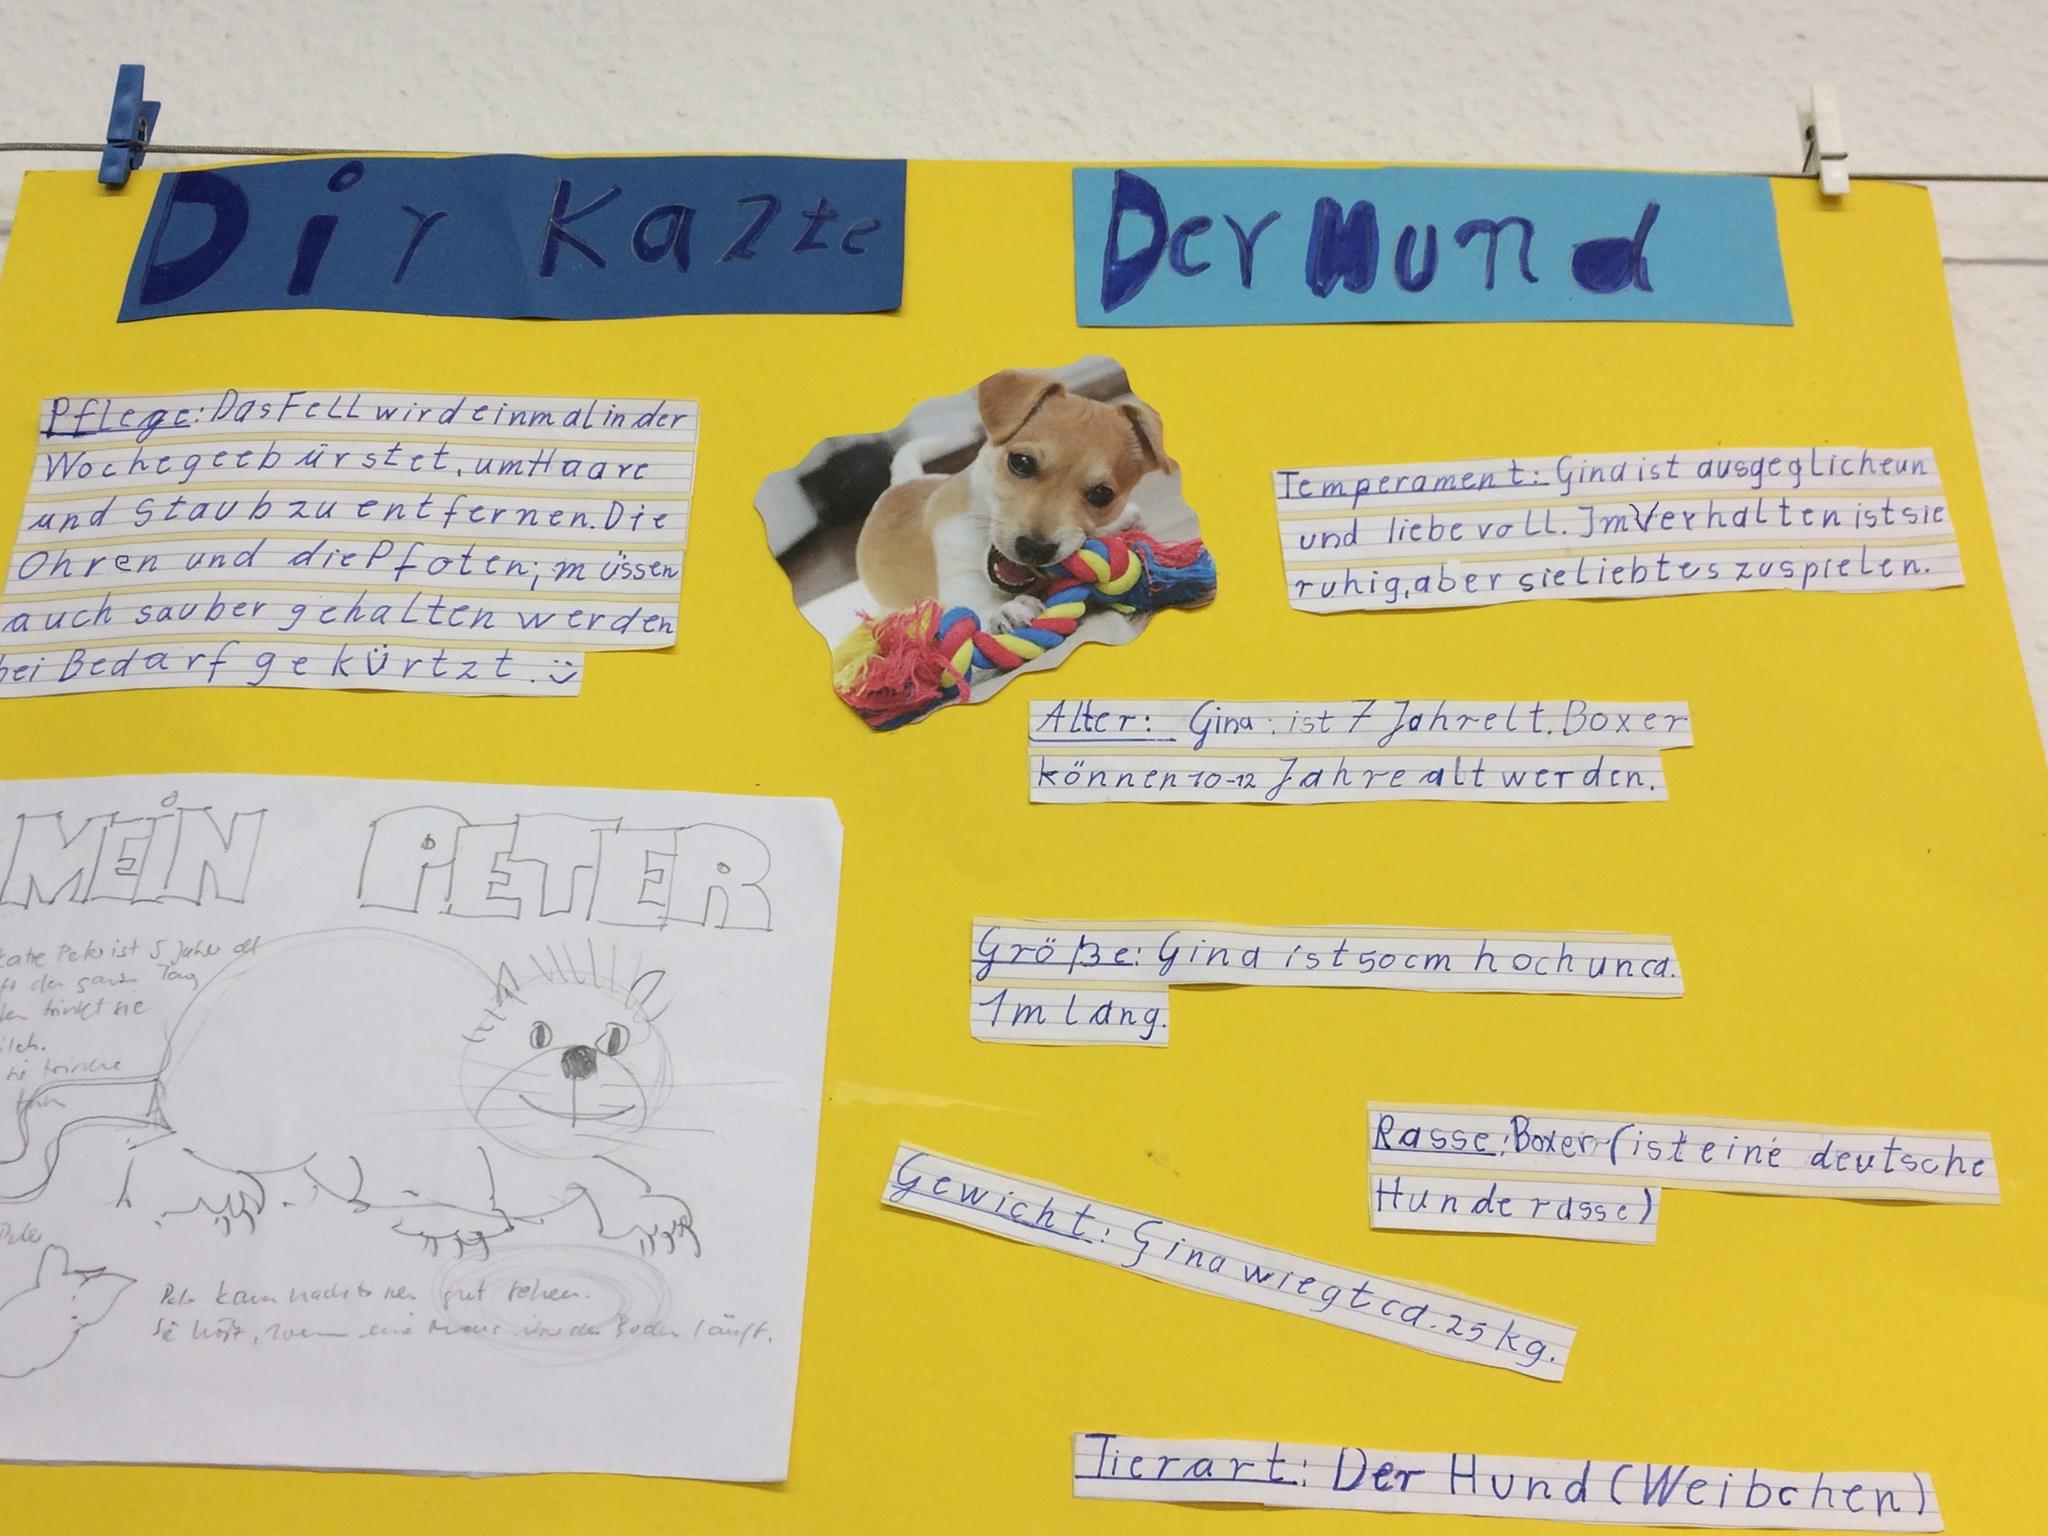 Dir Kazte
Der Hund
Pflege: Das Fell wird einmal in der
Woche geebürstet, um Haare
und Staub zu entfernen. Die
Ohren und die Pfoten; müssen
auch sauber gehalten werden
bei Bedarf gekürtzt. :)
Temperament: Gina ist ausgeglicheun
und liebevoll. Im Verhalten ist sie
ruhig, aber sie liebt es zu spielen.
Alter: Gina ist 7 Jahrelt. Boxer
können 10-12 Jahre alt werden.
Größe: Gina ist 50cm hoch un ca.
1m lang.
Rasse: Boxer (ist eine deutsche
Hunderasse)
Gewicht: Gina wiegt ca. 25 kg.
Tierart: Der Hund (Weibchen)
MEiN PETER
Peter ist 5 Jahre alt
den ganzen Tag
trinkt sie
Peter kann nachts gut sehen.
Sie hört, wenn eine Maus den Boden läuft.